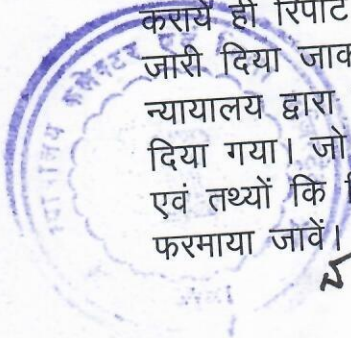 करायें ही रिपोर्ट
जारी दिया जाक
न्यायालय द्वारा
दिया गया। जो
एवं तथ्यों कि
फरमाया जावें।